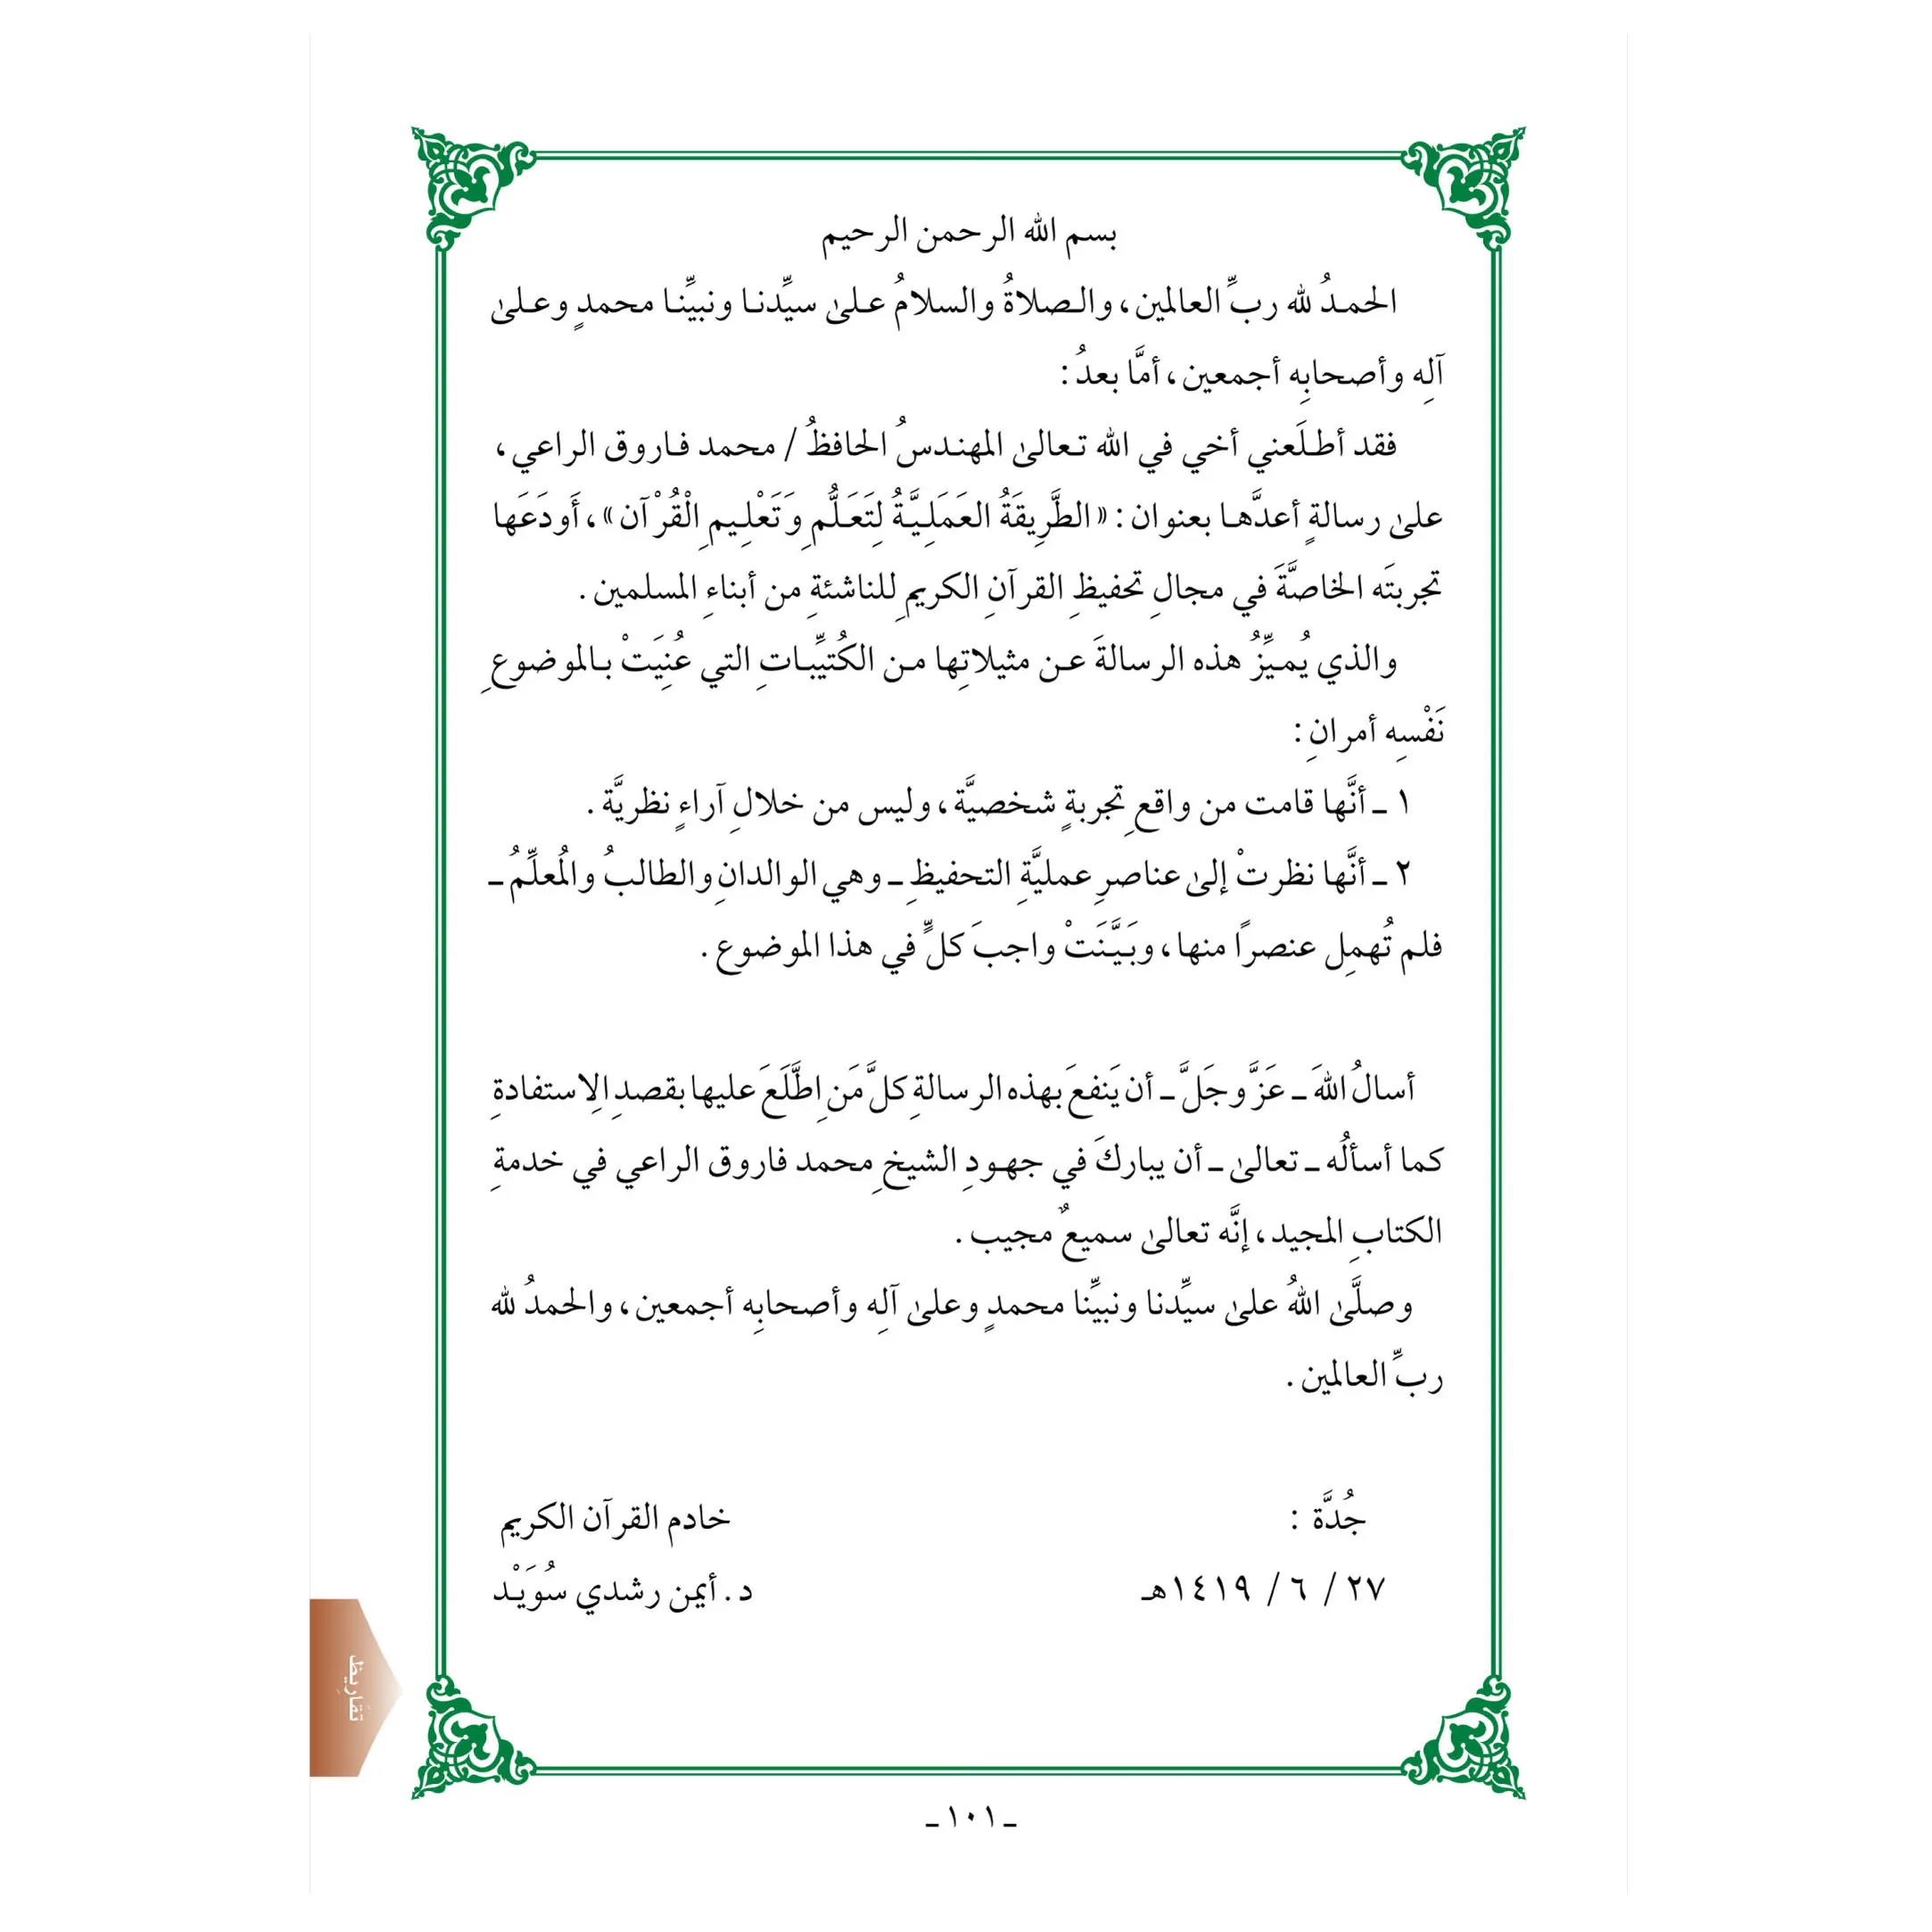 بسم الله الرحمن الرحيم
الحمدُ لله ربِّ العالمين، والصلاةُ والسلامُ علىٰ سيِّدنا ونبيِّنا محمدٍ وعلىٰ
آلِه وأصحابِه أجمعين، أمَّا بعدُ :
فقد أطلَعني أخي في الله تعالىٰ المهندسُ الحافظُ / محمد فاروق الراعي،
علىٰ رسالةٍ أعدَّها بعنوان : «الطَّرِيقَةُ العَمَلِيَّةُ لِتَعَلُّمِ وَتَعْلِيمِ الْقُرْآن»، أَودَعَها
تجربتَه الخاصَّةَ في مجالِ تحفيظِ القرآنِ الكريمِ للناشئةِ من أبناءِ المسلمين .
والذي يُميِّزُ هذه الرسالةَ عن مثيلاتِها من الكُتيِّباتِ التي عُنِيَتْ بالموضوعِ
نَفْسِه أمرانِ :
١ ـ أنَّها قامت من واقعِ تجربةٍ شخصيَّة، وليس من خلالِ آراءٍ نظريَّة .
٢ ـ أنَّها نظرتْ إلىٰ عناصرِ عمليَّةِ التحفيظِ ـ وهي الوالدانِ والطالبُ والمُعلِّمُ ـ
فلم تُهمِل عنصرًا منها، وبَيَّنَتْ واجبَ كلٍّ في هذا الموضوع .
أسالُ اللهَ ـ عَزَّ وجَلَّ ـ أن يَنفعَ بهذه الرسالةِ كلَّ مَن اِطَّلَعَ عليها بقصدِ الاِستفادةِ
كما أسألُه ـ تعالىٰ ـ أن يباركَ في جهودِ الشيخِ محمد فاروق الراعي في خدمةِ
الكتابِ المجيد، إنَّه تعالىٰ سميعٌ مجيب .
وصلَّىٰ اللهُ علىٰ سيِّدنا ونبيِّنا محمدٍ وعلىٰ آلِه وأصحابِه أجمعين، والحمدُ لله
ربِّ العالمين .
جُدَّة : خادم القرآن الكريم
٢٧ / ٦ / ١٤١٩هـ د. أيمن رشدي سُوَيْد
تقاريظ
ـ ١٠١ ـ